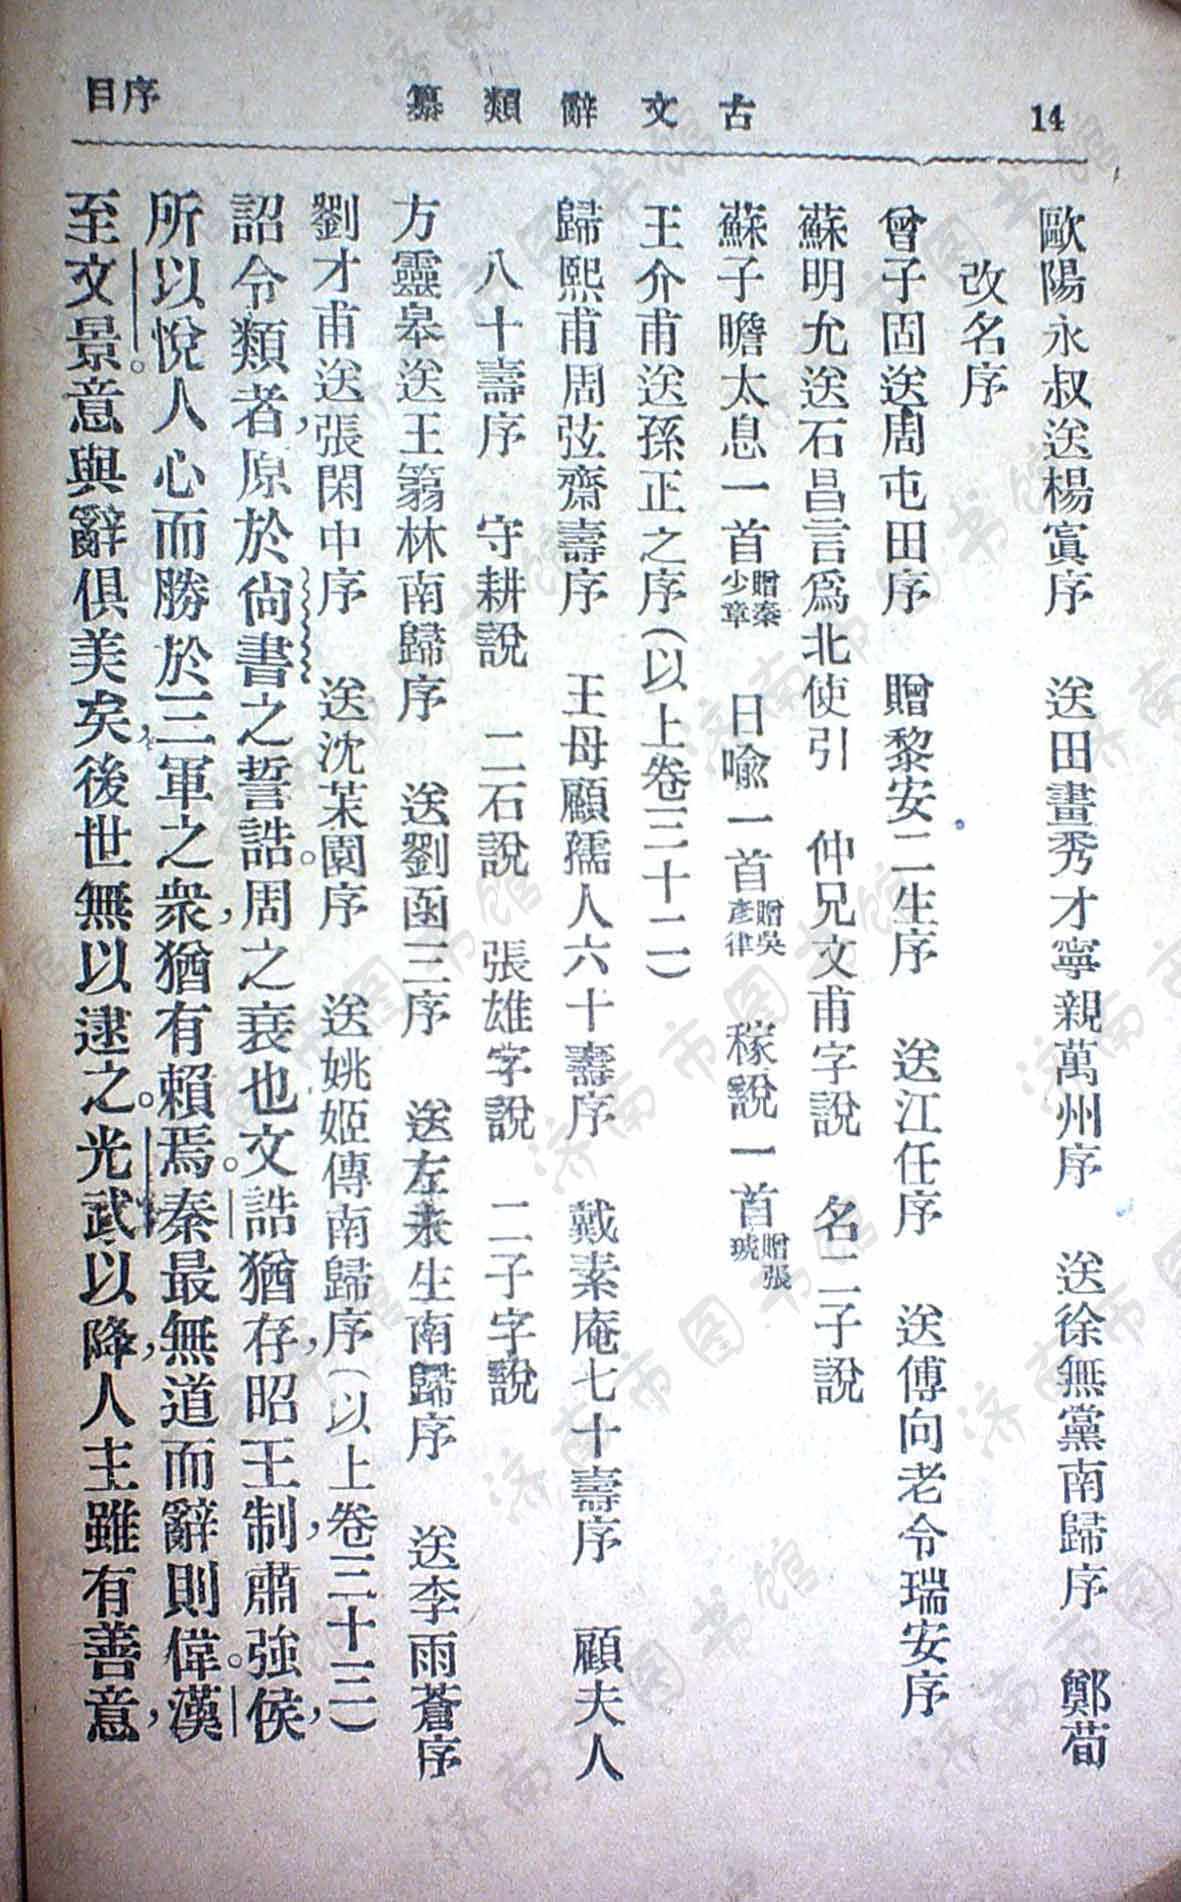 14
古文辭類纂
序目
歐陽永叔送楊寘序　送田畫秀才寧親萬州序　送徐無黨南歸序　鄭荀
改名序
曾子固送周屯田序　贈黎安二生序　送江任序　送傅向老令瑞安序
蘇明允送石昌言爲北使引　仲兄文甫字說　名二子說
蘇子瞻太息一首贈秦少章　日喩一首贈吳彥律　稼說一首贈張琥
王介甫送孫正之序(以上卷三十二)
歸熙甫周弦齋壽序　王母顧孺人六十壽序　戴素庵七十壽序　顧夫人
八十壽序　守耕說　二石說　張雄字說　二子字說
方靈皋送王篛林南歸序　送劉函三序　送左未生南歸序　送李雨蒼序
劉才甫送張閑中序　送沈茮園序　送姚姬傳南歸序(以上卷三十三)
詔令類者，原於尙書之誓誥。周之衰也，文誥猶存。昭王制，肅強侯，
所以悅人心而勝於三軍之衆，猶有賴焉。秦最無道，而辭則偉。漢
至文景，意與辭俱美矣，後世無以逮之。光武以降，人主雖有善意，
濟南市图书馆